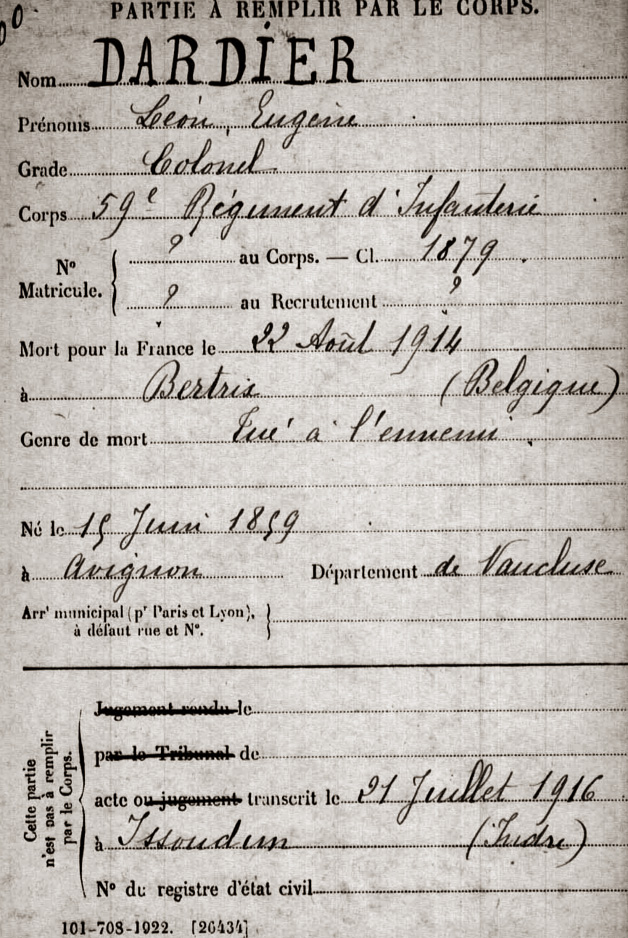 PARTIE À REMPLIR PAR LE CORPS.
Nom DARDIER
Prénoms Léon, Eugène
Grade Colonel
Corps 59e Régiment d'Infanterie
N° Matricule. { ? au Corps. — Cl. 1879.
? au Recrutement ?
Mort pour la France le 22 Août 1914
à Bertrix (Belgique)
Genre de mort Tué à l'ennemi.
Né le 15 Juin 1859
à Avignon Département de Vaucluse
Arrt municipal (pr Paris et Lyon),
à défaut rue et N°. }
Cette partie n'est pas à remplir par le Corps.
Jugement rendu le
par le Tribunal de
acte ou jugement transcrit le 21 Juillet 1916
à Issoudun (Indre)
N° du registre d'état civil
101-708-1922. [26434]